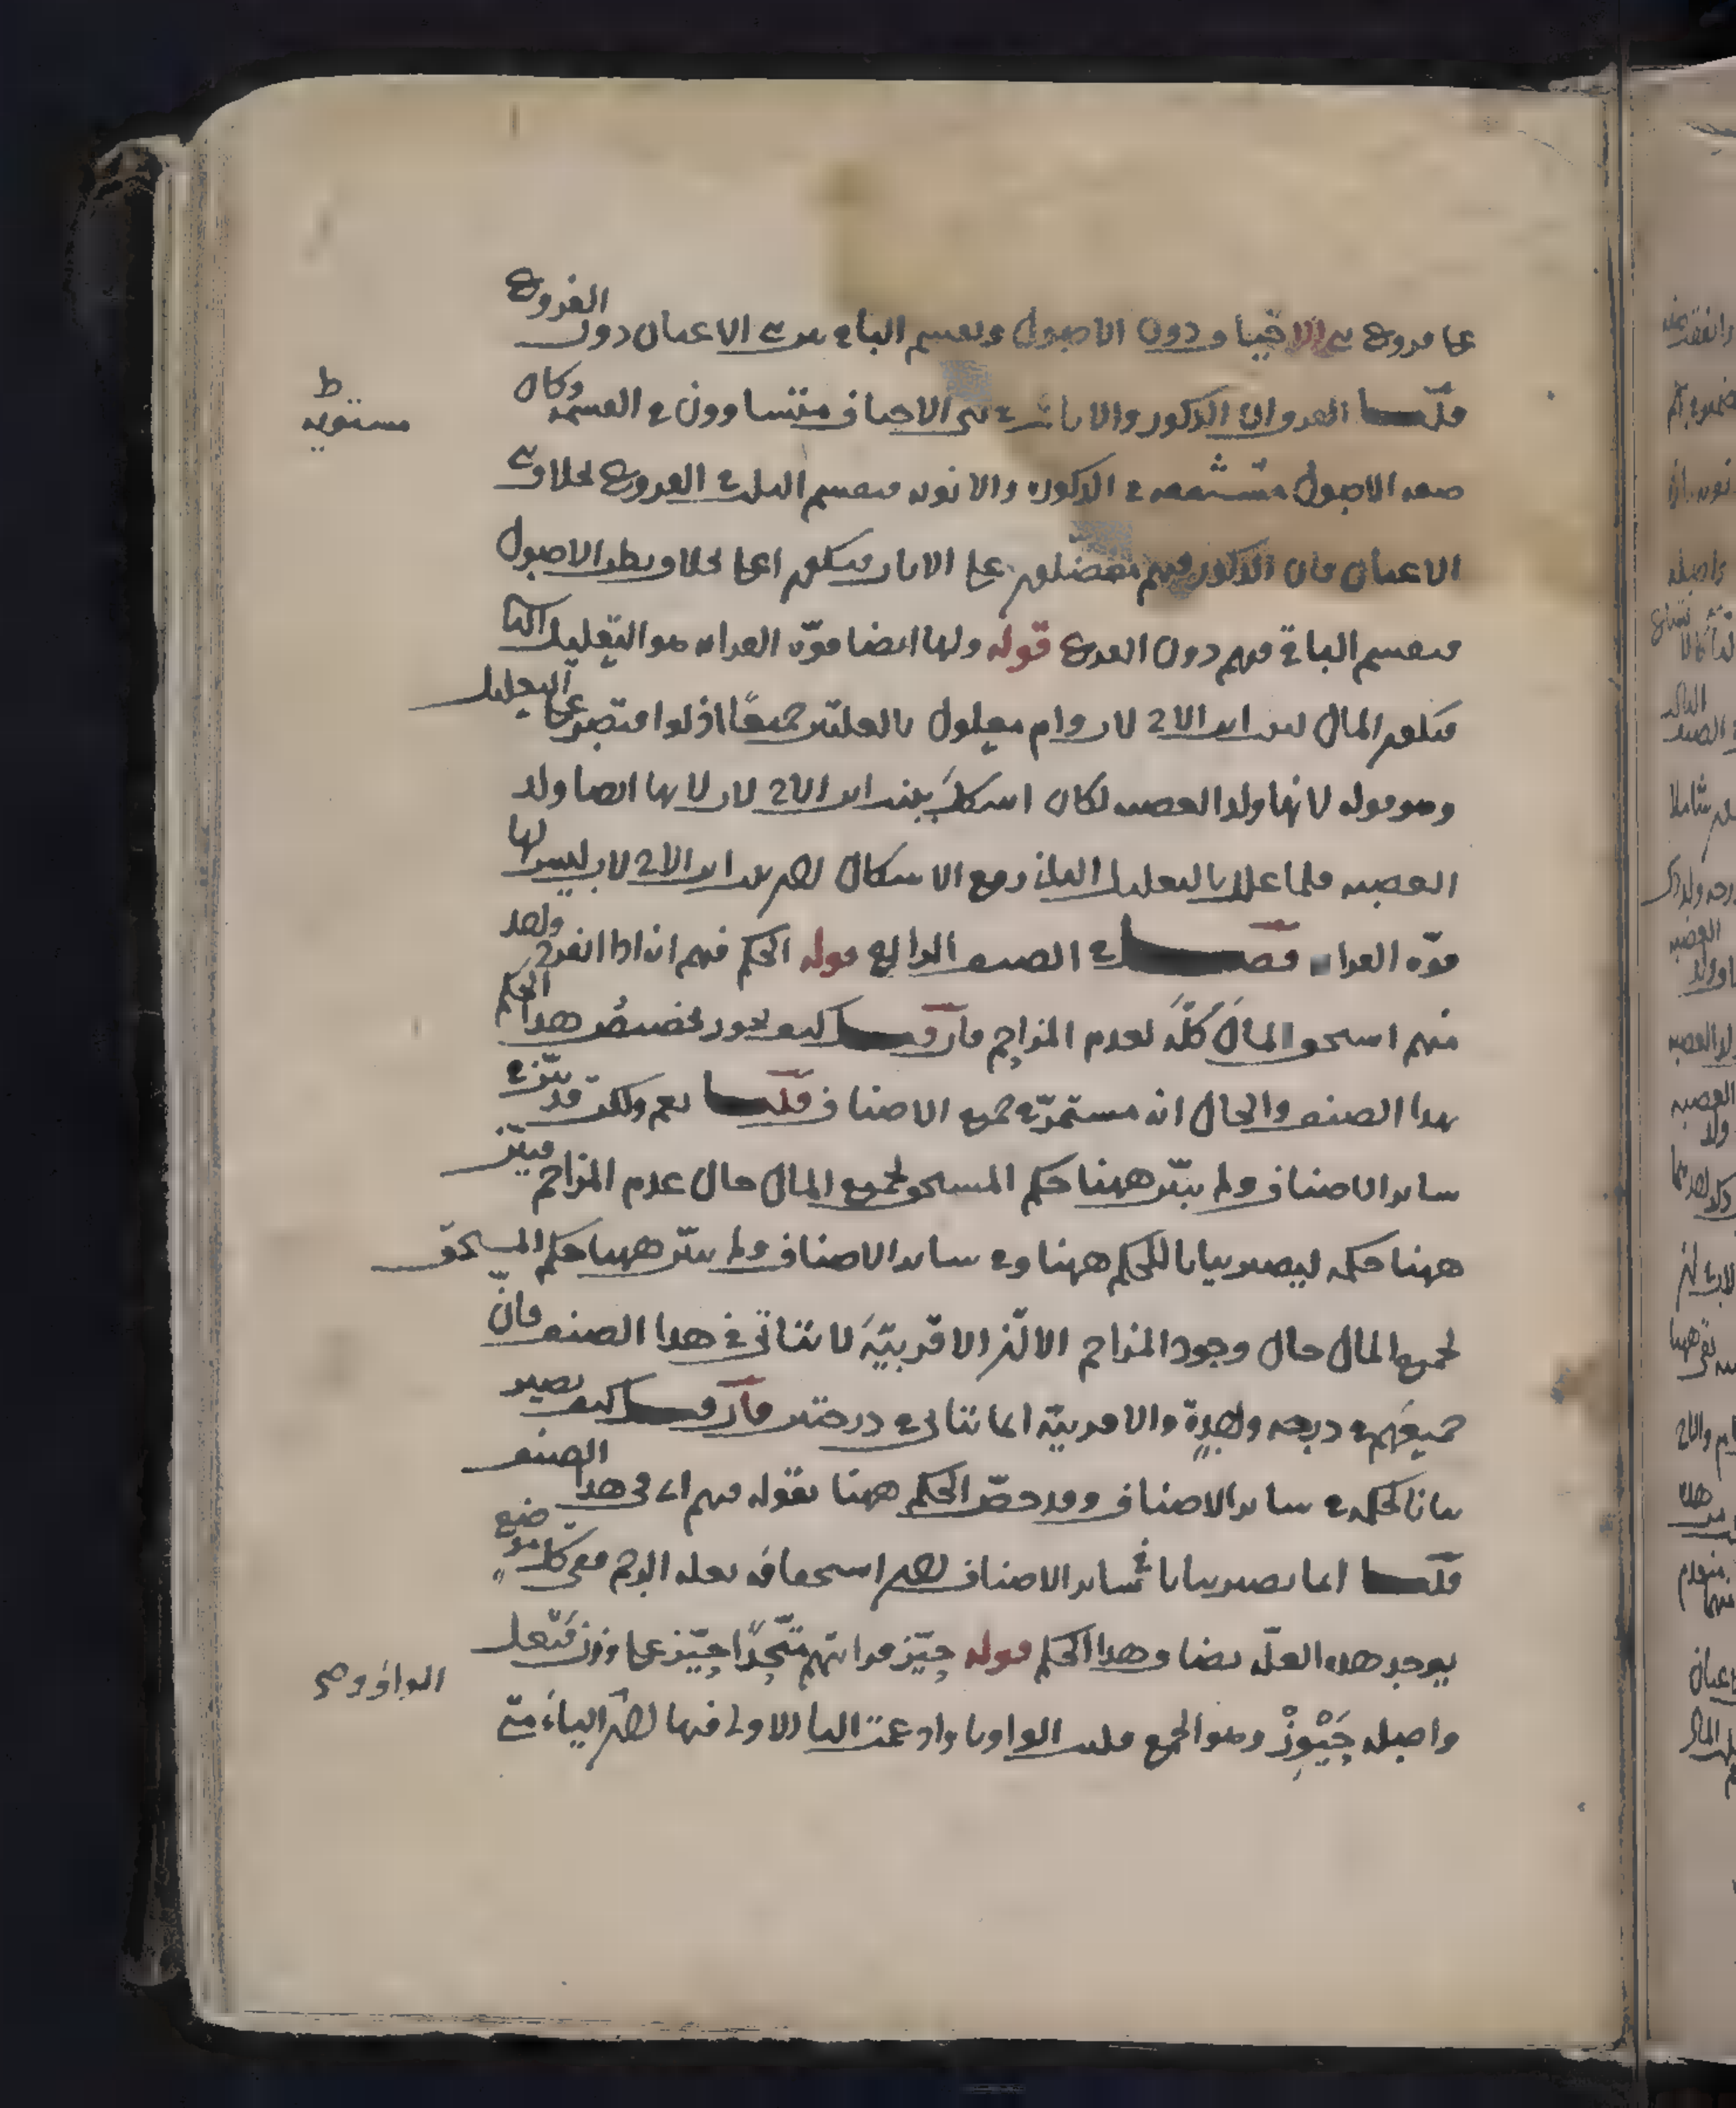 على فروع بني الاخياف دون الاصول ويقسم الباقي بين بني الاعيان دون الفروع
قلنا الفرق ان الذكور والاناث في بني الاخياف متساوون في القسمة وكان
مستويه ط
صفه الاصول في الذكوره والانوثه فيقسم الثلث على الفروع بخلاف بني
الاعيان فان الذكور منهم على الاناث فيكون الاصول
فيقسم الباقي فيهم دون الفروع قوله ولها ايضا قوّه القرابه هو التعليل الثاني
فيكون المال لبنت ابن الاخ لاب وام معلول بالعلتين جميعًا اذ لو اقتصر على التعليل
وهو قوله لانها ولد العصبه لكان اشكل ببنت ابن الاخ لاب لانها ايضا ولد
العصبه فلما علل بالتعليل الثاني دفع الاشكال لان بنت ابن الاخ لاب ليس لها
قوّه القرابه فصل في الصنف الرابع قوله الحكم فيهم انه اذا انفرد واحد
منهم استحق المال كلّه لعدم المزاحم فان قيل كيف يجوز تخصيص هذا الحكم
بهذا الصنف والحال انه مستمرّ في جميع الاصناف قلنا نعم ولكن قد بيّن في
ساير الاصناف ولم يبيّن ههنا حكم المستحق لجميع المال حال عدم المزاحم فبيّن
ههنا حكمه ليصير بيانا للحكم ههنا وفي ساير الاصناف ولم يبيّن ههنا حكم المستحق
لجميع المال حال وجود المزاحم لانّ الاقربيّة لا تتاتى في هذا الصنف فانّ
جميعهم في درجه واحدة والاقربيّه انما تتاتى في درجتين فان قيل كيف يصير
بيانا لحكمه في ساير الاصناف وقد خصّ الحكم ههنا بقوله فيهم اي في هذا الصنف
قلنا انما يصير بيانا في ساير الاصناف لان استحقاقه بعله الرحم ففي كلّ موضع
يوجد هذه العلّه ايضا وهذا الحكم قوله حيّز قرابتهم متّحدًا حيّز على وزن فيعل
واصله حَيْوِزْ وهو الجمع قلبت الواو ياء وادغمت الياء الاولى فيها لانّ الياء متى
الواو وهي